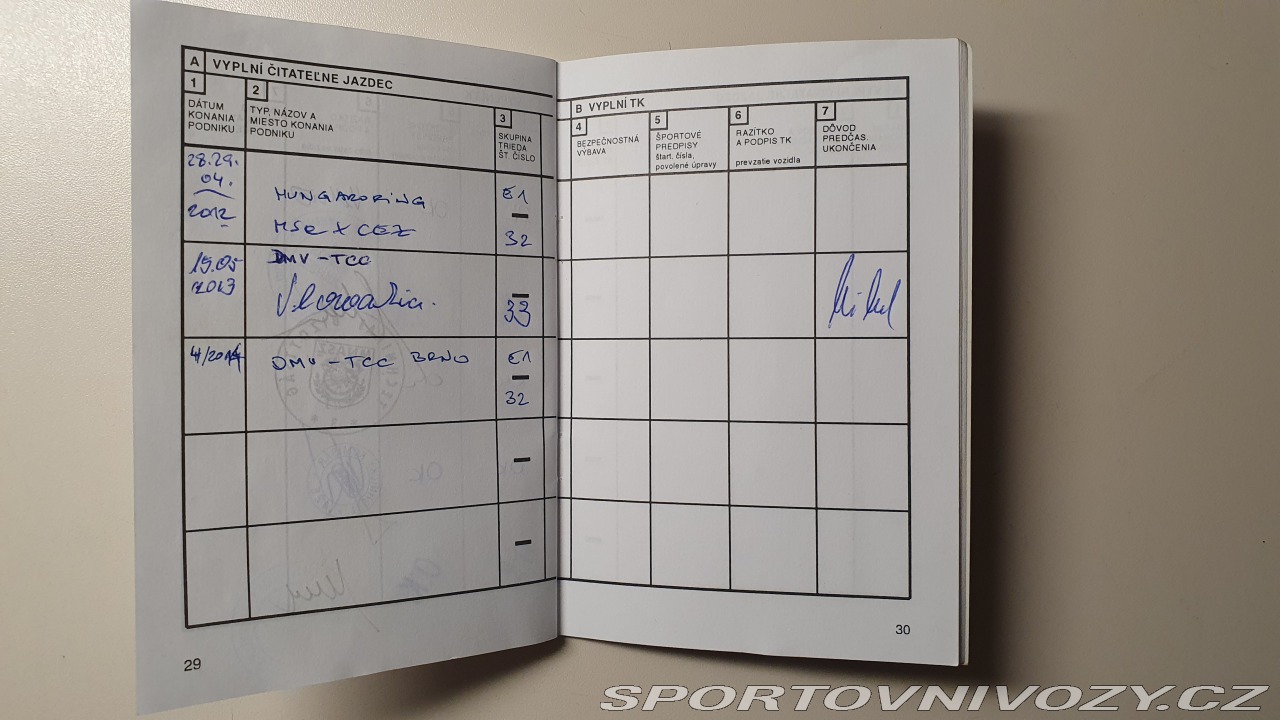 A VYPLNÍ ČITATEĽNE JAZDEC
1
DÁTUM
KONANIA
PODNIKU
2
TYP, NÁZOV A
MIESTO KONANIA
PODNIKU
3
SKUPINA
TRIEDA
ŠT. ČÍSLO
28.29.
04.
2012
HUNGARORING
E1
32
15.05
2013
DMV-TCC
33
4/2014
DMV-TCC BRNO
E1
32
29
B VYPLNÍ TK
4
BEZPEČNOSTNÁ
VÝBAVA
5
ŠPORTOVÉ
PREDPISY
štart. čísla,
povolené úpravy
6
RAZÍTKO
A PODPIS TK
prevzatie vozidla
7
DÔVOD
PREDČAS.
UKONČENIA
30
SPORTOVNIVOZY.CZ